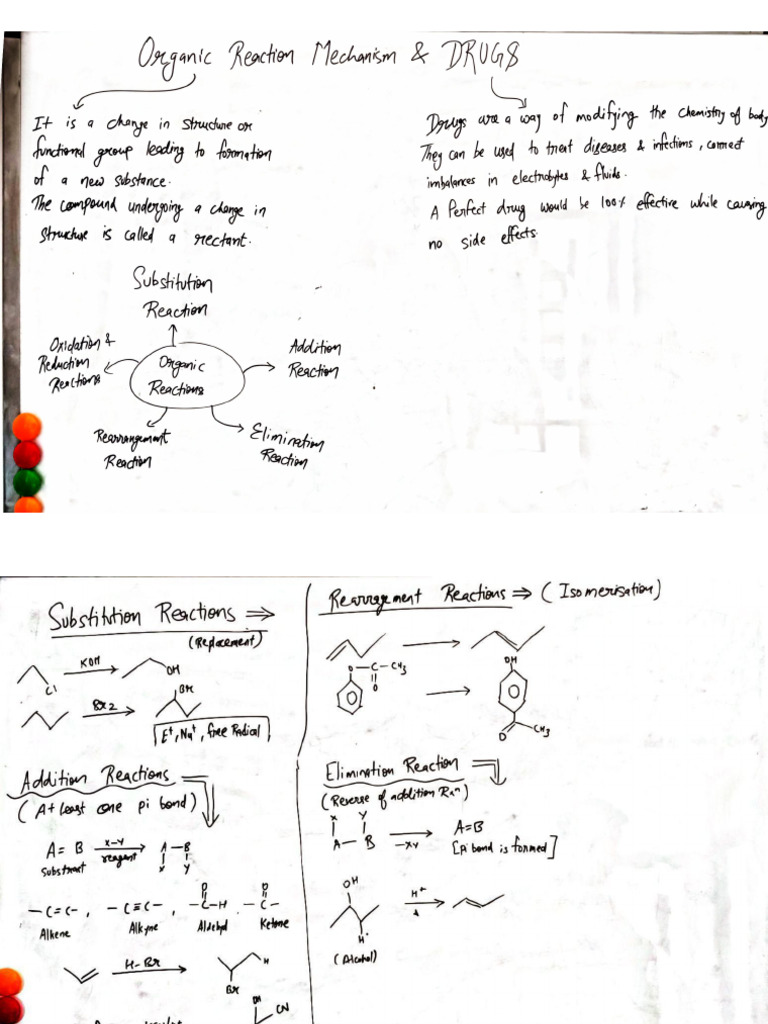 Organic Reaction Mechanism & DRUGS
It is a change in structure or
functional group leading to formation
of a new substance.
The compound undergoing a change in
structure is called a rectant.
Drugs are a way of modifying the chemistry of body
They can be used to treat diseases & infections, correct
imbalances in electrolytes & fluids.
A Perfect drug would be 100% effective while causing
no side effects.
Substitution
Reaction
Oxidation &
Reduction
Reactions
Organic
Reactions
Addition
Reaction
Rearrangement
Reaction
Elimination
Reaction
Substitution Reactions ⇒
(Replacement)
KOH
Cl
OH
Br2
Br
E+, Nu+, free Radical
Addition Reactions
(At least one pi bond)
A=B
X-Y
reagent
A-B
X Y
Substrat
-C=C- , -C≡C- , -C-H , -C-
O O
Alkene Alkyne Aldehyd Ketone
H-Br
H
Br
OH
CN
Rearragement Reactions ⇒ (Isomerisation)
O-C-CH3
O
OH
O
CH3
Elimination Reaction
(Reverse of addition Rxn)
X Y
A-B
-XY
A=B
[Pi bond is formed]
OH
H+
Δ
H
(Alcohol)